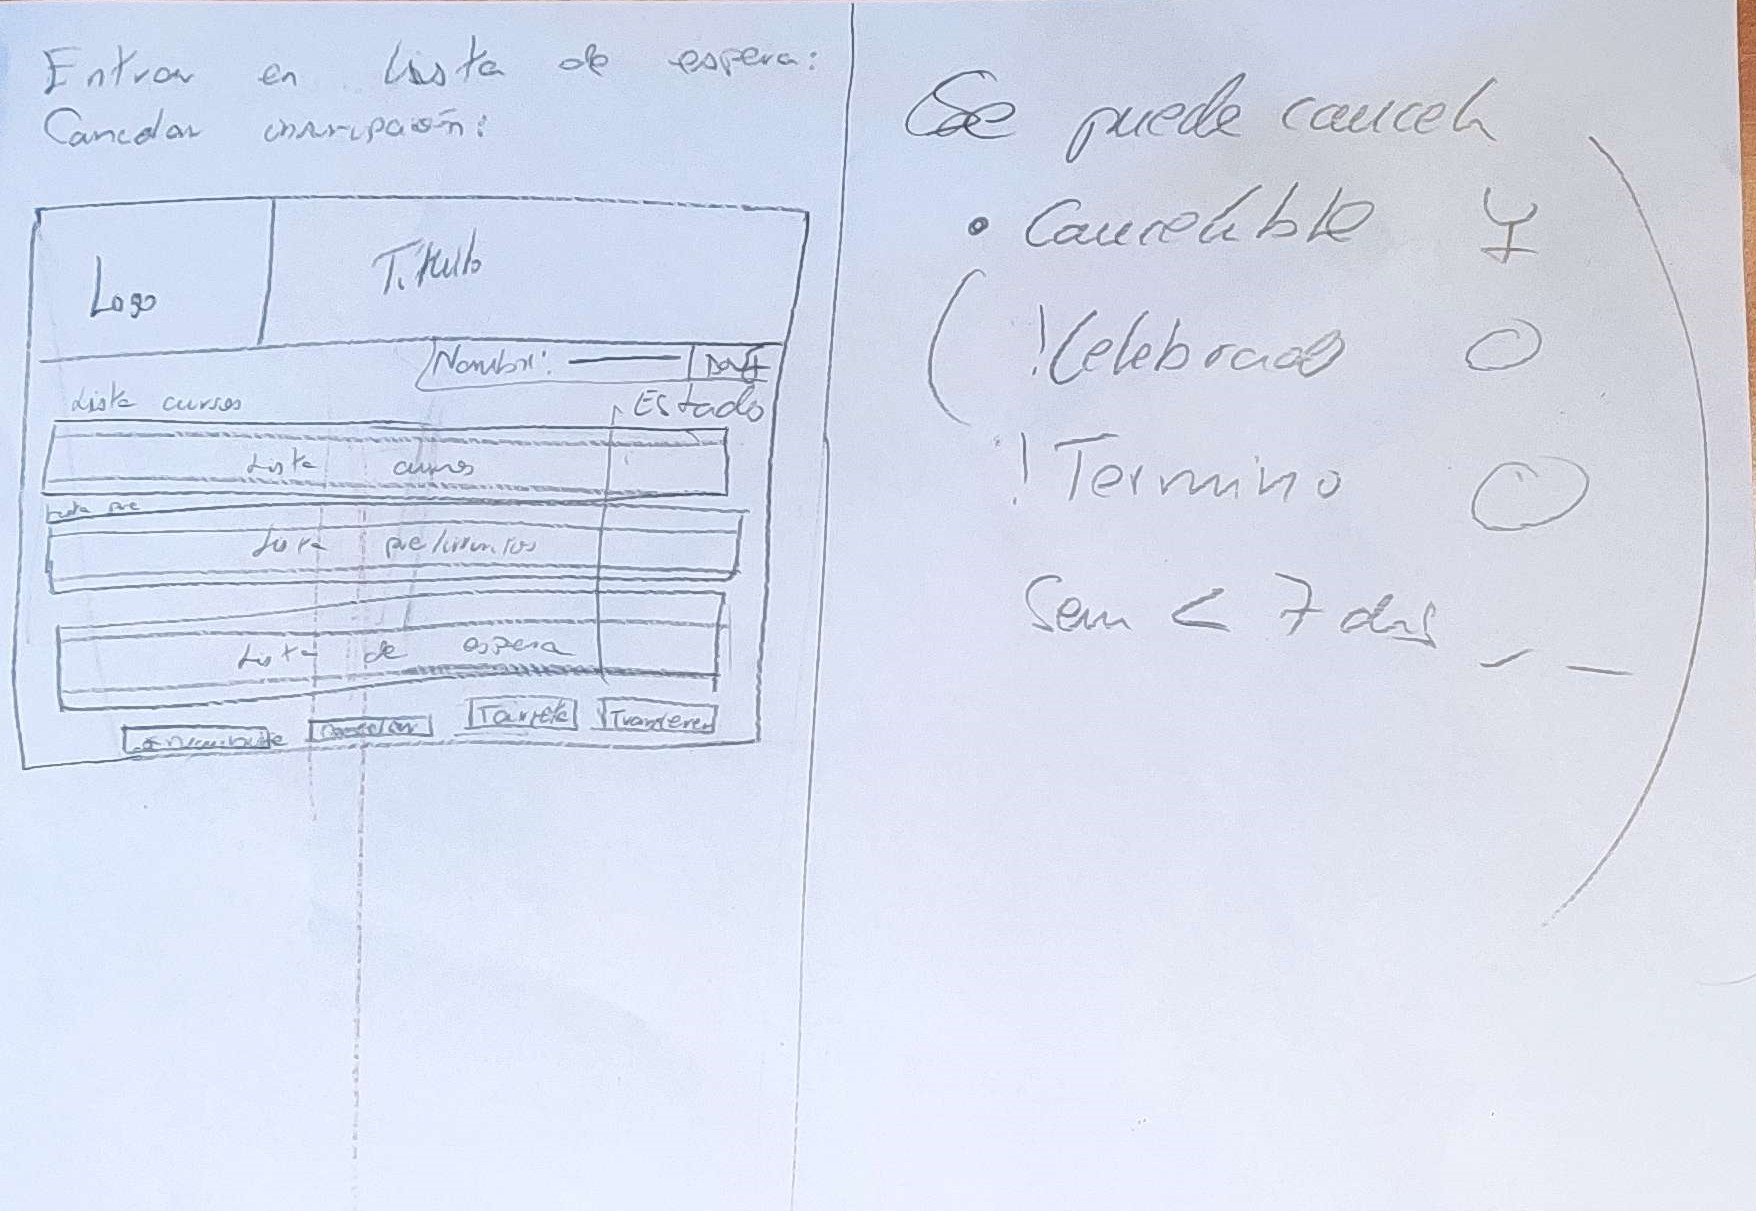 Entrar en Lista de espera:
Cancelar inscripción:
Logo
Titulo
Nombre:
Lista cursos
Estado
Lista cursos
Lista
Lista de espera
Cancelar
Tarjeta
Transferencia
Se puede cancel
• Cancelable
( ! Celebrado O
! Termino O
Sem < 7 dias